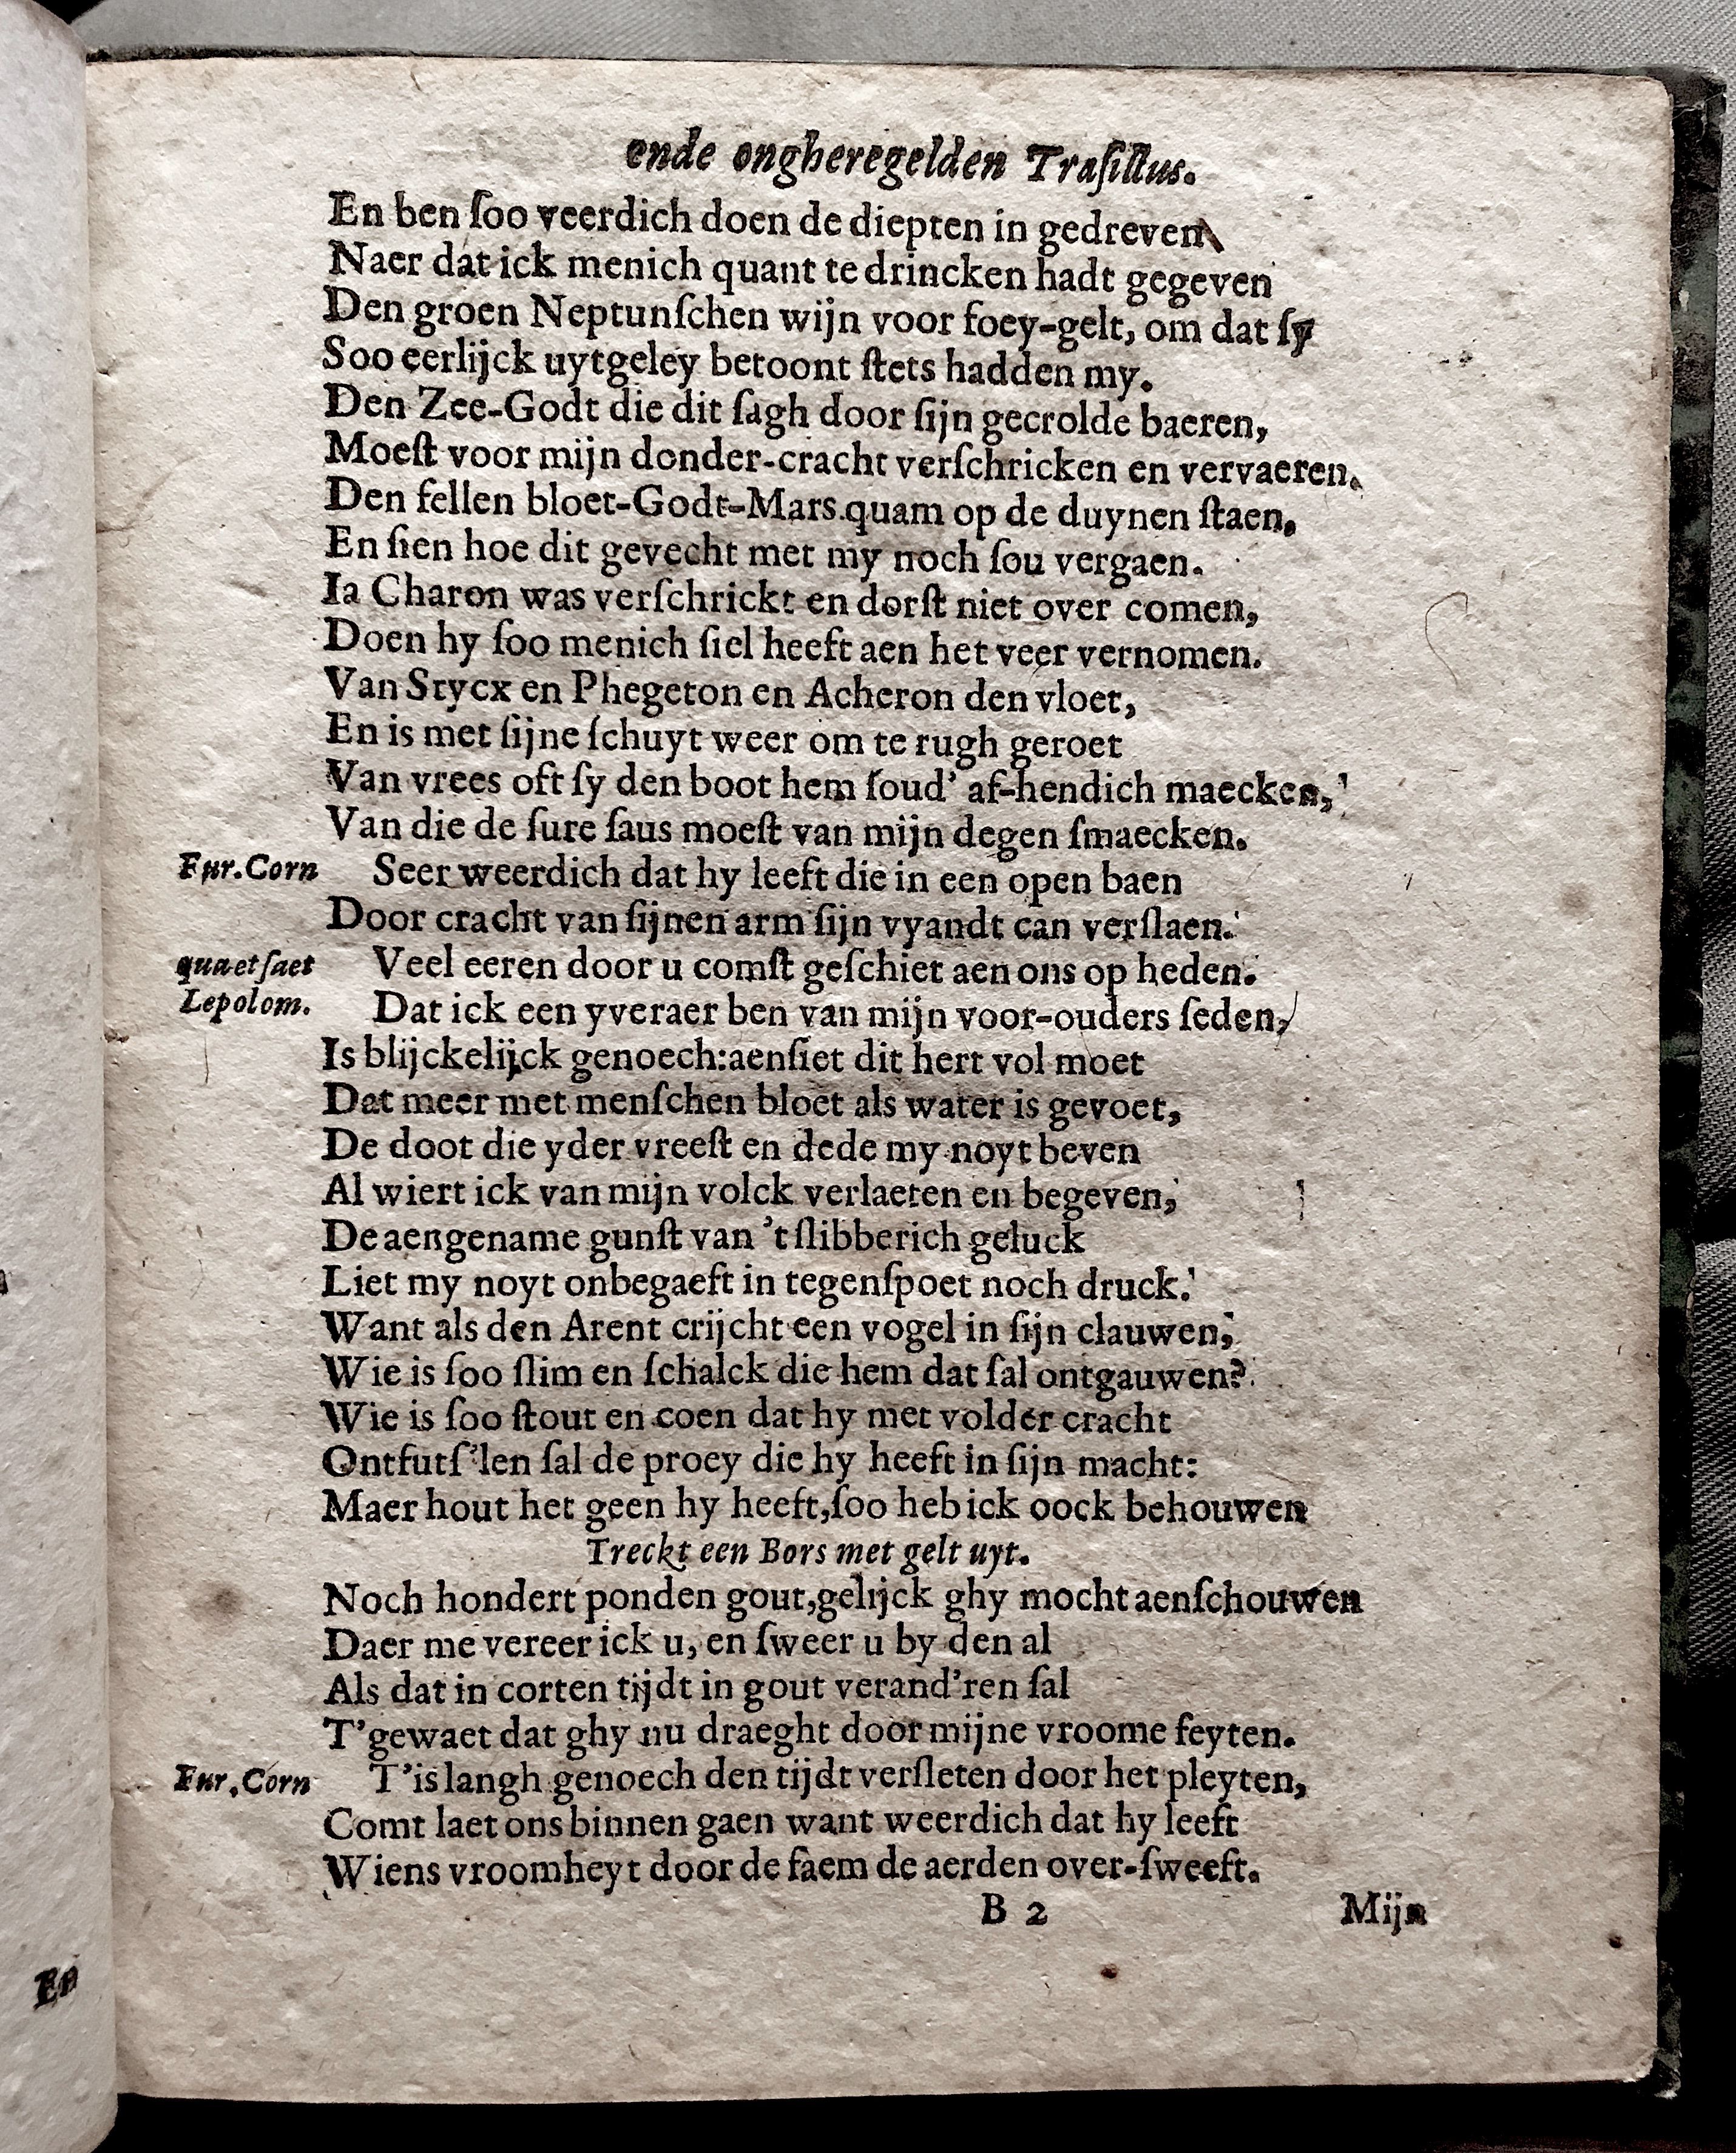 ende ongheregelden Traſillus.
En ben ſoo veerdich doen de diepten in gedreven
Naer dat ick menich quant te drincken hadt gegeven
Den groen Neptunſchen wijn voor foey-gelt, om dat ſy
Soo eerlijck uytgeley betoont ſtets hadden my.
Den Zee-Godt die dit ſagh door ſijn gecrolde baeren,
Moeſt voor mijn donder-cracht verſchricken en vervaeren.
Den fellen bloet-Godt-Mars quam op de duynen ſtaen,
En ſien hoe dit gevecht met my noch ſou vergaen.
Ia Charon was verſchrickt en dorſt niet over comen,
Doen hy ſoo menich ſiel heeft aen het veer vernomen.
Van Stycx en Phegeton en Acheron den vloet,
En is met ſijne ſchuyt weer om te rugh geroet
Van vrees oft ſy den boot hem ſoud' af-hendich maecken,
Van die de ſure ſaus moeſt van mijn degen ſmaecken.
Fur.Corn Seer weerdich dat hy leeft die in een open baen
Door cracht van ſijnen arm ſijn vyandt can verſlaen.
quaet ſaet Veel eeren door u comſt geſchiet aen ons op heden.
Lepolom. Dat ick een yveraer ben van mijn voor-ouders ſeden,
Is blijckelijck genoech:aenſiet dit hert vol moet
Dat meer met menſchen bloet als water is gevoet,
De doot die yder vreeſt en dede my noyt beven
Al wiert ick van mijn volck verlaeten en begeven,
De aengename gunſt van 't ſlibberich geluck
Liet my noyt onbegaeft in tegenſpoet noch druck.
Want als den Arent crijcht een vogel in ſijn clauwen,
Wie is ſoo ſlim en ſchalck die hem dat ſal ontgauwen?
Wie is ſoo ſtout en coen dat hy met volder cracht
Ontfutſ'len ſal de proey die hy heeft in ſijn macht:
Maer hout het geen hy heeft,ſoo heb ick oock behouwen
Treckt een Bors met gelt uyt.
Noch hondert ponden gout,gelijck ghy mocht aenſchouwen
Daer me vereer ick u, en ſweer u by den al
Als dat in corten tijdt in gout verand'ren ſal
T'gewaet dat ghy nu draeght door mijne vroome feyten.
Fur.Corn T'is langh genoech den tijdt verſleten door het pleyten,
Comt laet ons binnen gaen want weerdich dat hy leeft
Wiens vroomheyt door de faem de aerden over-ſweeft.
B 2 Mijn
En